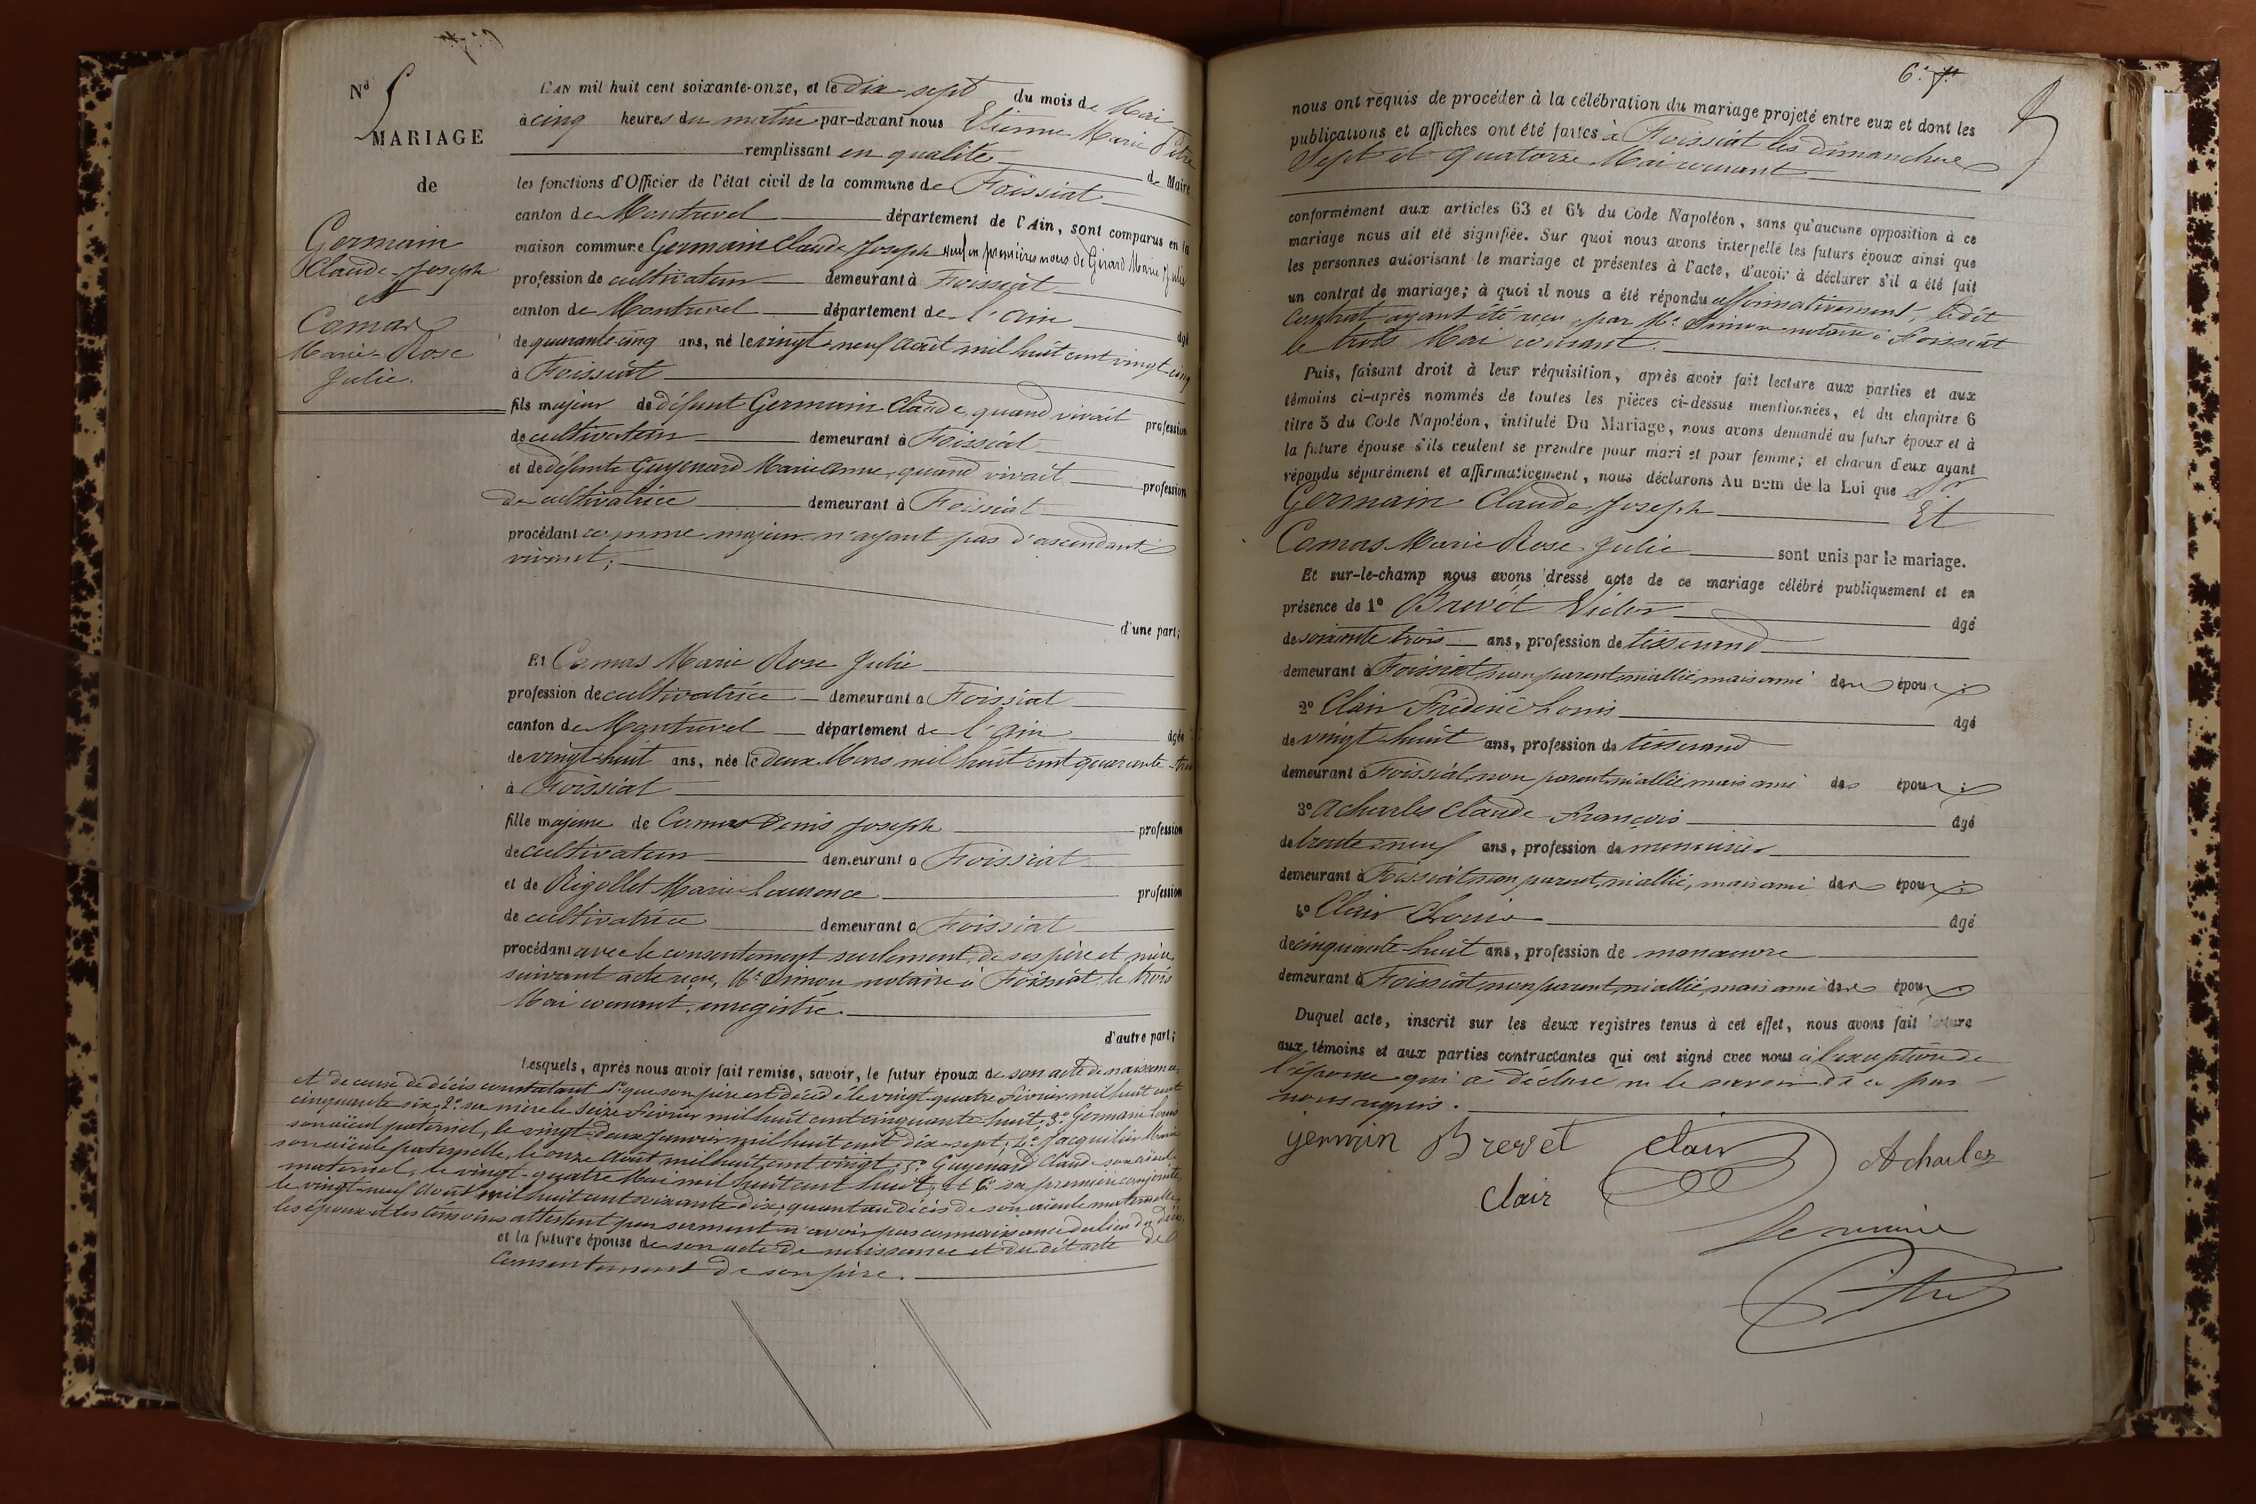 Nº 5
MARIAGE
de
Germain
Claude-Joseph
et
Camas
Marie-Rose
Julie.
L'AN mil huit cent soixante-onze, et le dix-sept du mois de Mai
à cinq heures du matin par-devant nous Etienne Marie Pitre
remplissant en qualité de Maire
les fonctions d'Officier de l'état civil de la commune de Foissiat
canton de Montrevel département de l'Ain, sont comparus en la
maison commune Germain Claude Joseph veuf en premières noces de Girard Marie Julie
profession de cultivateur demeurant à Foissiat
canton de Montrevel département de l'Ain
âgé
de quarante-cinq ans, né le vingt-neuf Août mil huit cent vingt-cinq
à Foissiat
fils majeur de défunt Germain Claude, quand vivait profession
de cultivateur demeurant à Foissiat
et de défunte Guyenard Marie Anne, quand vivait profession
de cultivatrice demeurant à Foissiat
procédant comme majeur n'ayant pas d'ascendants
vivant;
d'une part;
Et Camas Marie Rose Julie
profession de cultivatrice demeurant à Foissiat
canton de Montrevel département de l'Ain âgée
de vingt-huit ans, née le deux Mars mil huit cent quarante-trois
à Foissiat
fille majeure de Camas Denis Joseph profession
de cultivateur demeurant à Foissiat
et de Rigollet Marie Laurence profession
de cultivatrice demeurant à Foissiat
procédant avec le consentement seulement de ses père et mère
suivant acte reçu, Me Simon notaire à Foissiat le trois
Mai courant, enregistré.
d'autre part;
Lesquels, après nous avoir fait remise, savoir, le futur époux de son acte de naissance
et de ceux de décès constatant 1º que son père est décédé le vingt-quatre Février mil huit cent
cinquante six, 2º sa mère le seize Février mil huit cent cinquante huit, 3º Germain Louis
son aïeul paternel, le vingt-deux Janvier mil huit cent dix-sept, 4º Jacquilin Marie
son aïeule paternelle, le onze Août mil huit cent vingt, 5º Guyenard Claude son aïeul
maternel, le vingt-quatre Mai mil huit cent huit, et 6º sa première conjointe,
le vingt-neuf Août mil huit cent soixante dix; quant au décès de son aïeule maternelle,
les époux et les témoins attestent par serment n'avoir pas connaissance du lieu du décès,
et la future épouse de son acte de naissance et du dit acte de
consentement de son père.
6e
nous ont requis de procéder à la célébration du mariage projeté entre eux et dont les
publications et affiches ont été faites à Foissiat les dimanches
Sept et Quatorze Mai courant
conformément aux articles 63 et 64 du Code Napoléon, sans qu'aucune opposition à ce
mariage nous ait été signifiée. Sur quoi nous avons interpellé les futurs époux ainsi que
les personnes autorisant le mariage et présentes à l'acte, d'avoir à déclarer s'il a été fait
un contrat de mariage; à quoi il nous a été répondu affirmativement, ledit
Contrat ayant été reçu, par Me Simon notaire à Foissiat
le trois Mai courant.
Puis, faisant droit à leur réquisition, après avoir fait lecture aux parties et aux
témoins ci-après nommés de toutes les pièces ci-dessus mentionnées, et du chapitre 6
titre 5 du Code Napoléon, intitulé Du Mariage, nous avons demandé au futur époux et à
la future épouse s'ils veulent se prendre pour mari et pour femme; et chacun d'eux ayant
répondu séparément et affirmativement, nous déclarons Au nom de la Loi que
Germain Claude Joseph Et
Camas Marie Rose Julie sont unis par le mariage.
Et sur-le-champ nous avons dressé acte de ce mariage célébré publiquement et en
présence de 1º Brevet Victor âgé
de soixante trois ans, profession de tisserand
demeurant à Foissiat non parent, ni allié, mais ami des époux;
2º Clair Fréderic Louis âgé
de vingt-huit ans, profession de tisserand
demeurant à Foissiat, non parent, ni allié, mais ami des époux;
3º Acharles Claude François âgé
de trente-neuf ans, profession de menuisier
demeurant à Foissiat non parent, ni allié, mais ami des époux;
4º Clair Louis âgé
de cinquante-huit ans, profession de manœuvre
demeurant à Foissiat non parent, ni allié, mais ami des époux
Duquel acte, inscrit sur les deux registres tenus à cet effet, nous avons fait lecture
aux témoins et aux parties contractantes qui ont signé avec nous à l'exception de
l'épouse qui a déclaré ne le savoir de ce par
nous requis.
germain Brevet Clair Acharles
Clair
Le maire
Pitre